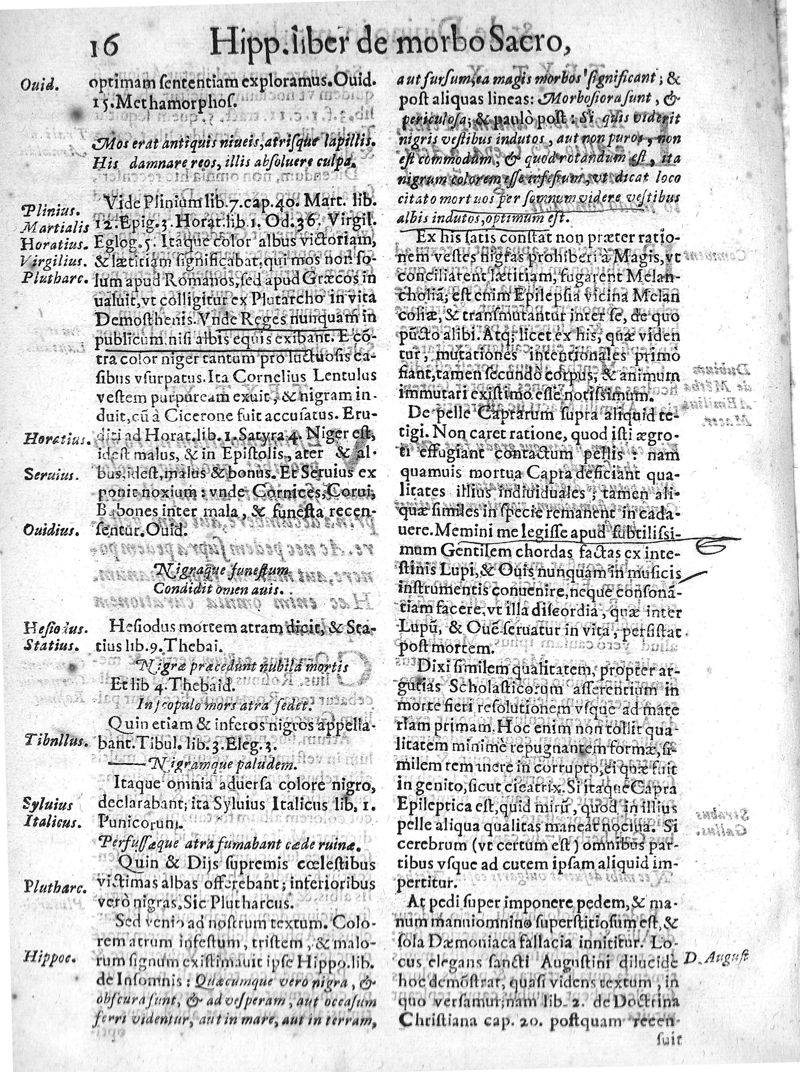 16 Hipp. liber de morbo Sacro,
Ouid.
optimam sententiam exploramus. Ouid.
15. Methamorphos.
Mos erat antiquis niueis, atrisque lapillis.
His damnare reos, illis absoluere culpa.
Plinius.
Martialis
Horatius.
Virgilius.
Plutharc.
Vide Plinium lib. 7. cap. 40. Mart. lib.
12. Epig. 3. Horat. lib. 1. Od. 36. Virgil.
Eglog. 5. Itaque color albus victoriam,
& lætitiam significabat, qui mos non so-
lum apud Romanos, sed apud Græcos in
ualuit, vt colligitur ex Plutarcho in vita
Demosthenis. Vnde Reges nunquam in
publicum nisi albis equis exibant. E cõ-
tra color niger tantum pro luctuosis ca-
sibus vsurpatus. Ita Cornelius Lentulus
vestem purpuream exuit, & nigram in-
duit, cũ à Cicerone fuit accusatus. Eru-
Horatius.
diti ad Horat. lib. 1. Satyra 4. Niger est,
idest malus, & in Epistolis, ater & al-
Seruius.
bus, idest, malus & bonus. Et Seruius ex
ponit noxium: vnde Cornices, Corui,
Bubones inter mala, & funesta recen-
Ouidius.
sentur. Ouid.
Nigraque funestum
Condidit omen auis.
Hesiodus.
Statius.
Hesiodus mortem atram dicit, & Sta-
tius lib. 9. Thebai.
Nigræ præcedunt nubila mortis
Et lib 4. Thebaid.
In scopulo mors atra sedet.
Quin etiam & inferos nigros appella-
Tibnllus.
bant. Tibul. lib. 3. Eleg. 3.
Nigramque paludem.
Itaque omnia aduersa colore nigro,
Syluius
Italicus.
declarabant; ita Syluius Italicus lib. 1.
Punicorum.
Perfussæque atra fumabant cæde ruinæ.
Quin & Dijs supremis cœlestibus
Plutharc.
victimas albas offerebant; inferioribus
verò nigras. Sic Plutharcus.
Sed venio ad nostrum textum. Colo-
rem atrum infestum, tristem, & malo-
Hippoc.
rum signum existimauit ipse Hippo. lib.
de Insomnis: Quæcumque vero nigra, &
obscura sunt, & ad vesperam, aut occasum
ferri videntur, aut in mare, aut in terram,
aut sursum, ea magis morbos significant; &
post aliquas lineas: Morbosiora sunt, &
periculosa; & paulò post: Si quis viderit
nigris vestibus indutos, aut non puros, non
est commodum; & quod rotandum est, ita
nigrum colorem esse infestum, vt dicat loco
citato mortuos per somnum videre vestibus
albis indutos, optimum est.
Ex his satis constat non præter ratio-
nem vestes nigras prohiberi à Magis, vt
conciliarent lætitiam, fugarent Melan-
choliã; est enim Epilepsia vicina Melan
coliæ, & transmutantur inter se, de quo
pũcto alibi. Atq; licet ex his, quæ viden
tur, mutationes intentionales primo
fiant, tamen secundo corpus, & animum
immutari existimo esse notissimum.
De pelle Caprarum supra aliquid te-
tigi. Non caret ratione, quod isti ægro-
ti effugiant contactum pellis: nam
quamuis mortua Capra deficiant qua-
litates illius indiuiduales; tamen ali-
quæ similes in specie remanent in cada-
uere. Memini me legisse apud subtilissi-
mum Gentilem chordas factas ex inte-
stinis Lupi, & Ouis nunquam in musicis
instrumentis conuenire, neque consonã-
tiam facere, vt illa discordia, quæ inter
Lupũ, & Ouẽ seruatur in vita, persistat
post mortem.
Dixi similem qualitatem, propter ar-
gutias Scholasticorum asserentium in
morte fieri resolutionem vsque ad mate
riam primam. Hoc enim non tollit qua-
litatem minimè repugnantem formæ, si-
milem remanere in corrupto, ei quæ fuit
in genito, sicut cicatrix. Si itaque Capra
Epileptica est, quid mirũ, quod in illius
pelle aliqua qualitas maneat nociua. Si
cerebrum (vt certum est) omnibus par-
tibus vsque ad cutem ipsam aliquid im-
pertitur.
At pedi super imponere pedem, & ma-
num manni omnino superstitiosum est, &
sola Dæmoniaca fallacia innititur. Lo-
D. August
cus elegans sancti Augustini dilucidè
hoc demõstrat, quasi videns textum, in
quo versamur; nam lib. 2. de Doctrina
Christiana cap. 20. postquam recen-
suit